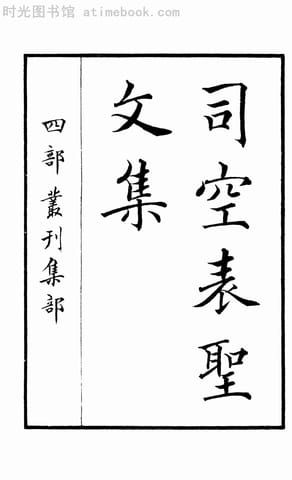 时光图书馆 atimebook.com
司空表聖
文集
四部叢刊集部